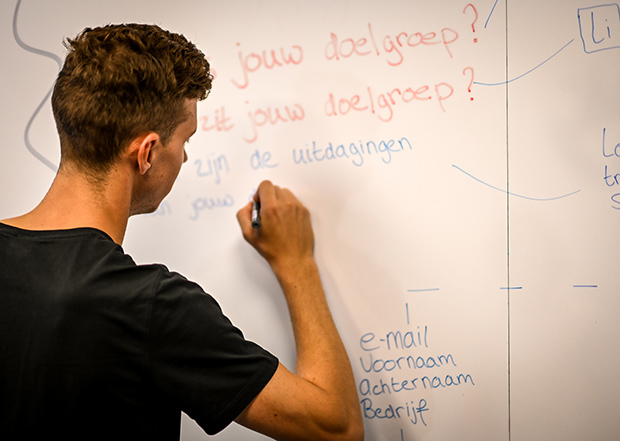 jouw doelgroep?
zit jouw doelgroep?
zijn de uitdagingen
jouw
Li
e-mail
Voornaam
Achternaam
Bedrijf